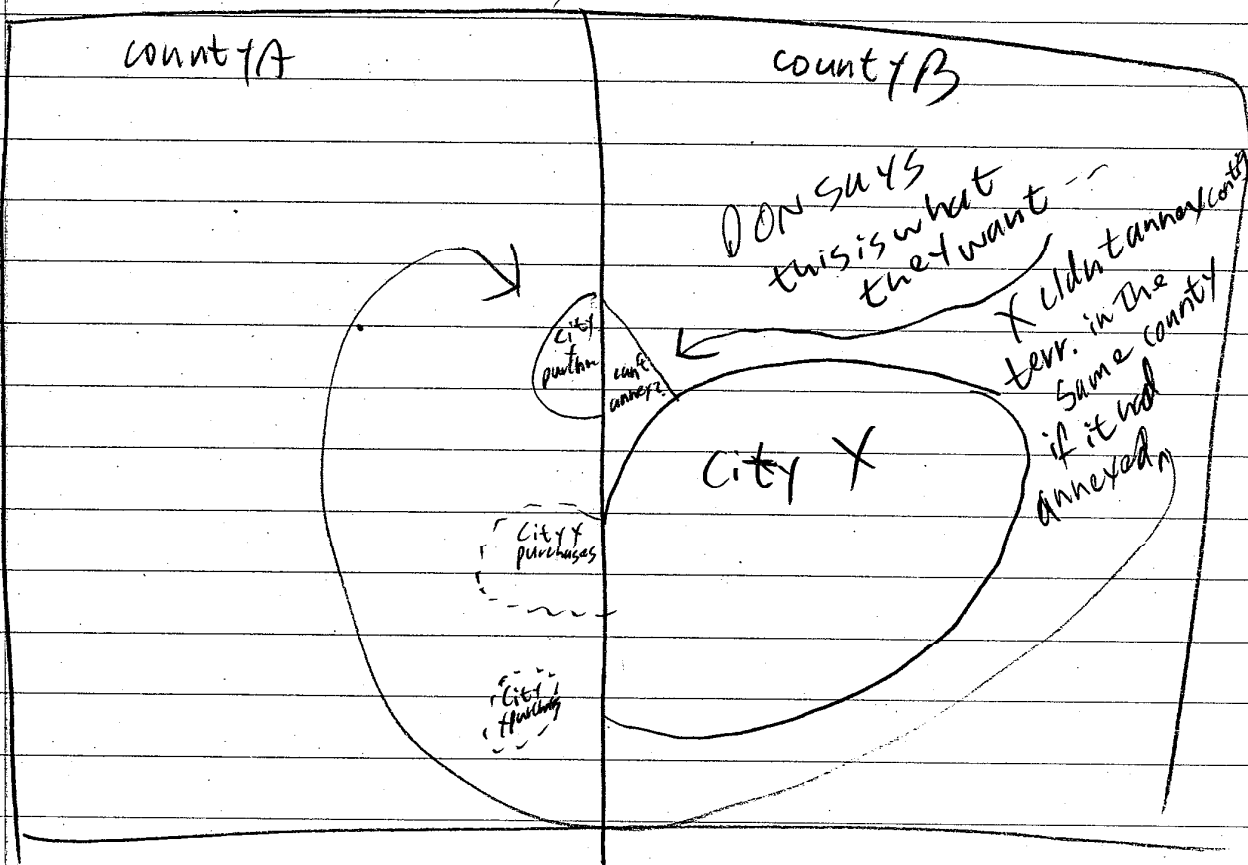 county A
county B
DON says
this is what
they want --
X cldnt annex conti
terr. in the
same county
if it had
annexed
City
can't
annex?
City X
City X
purchases
City